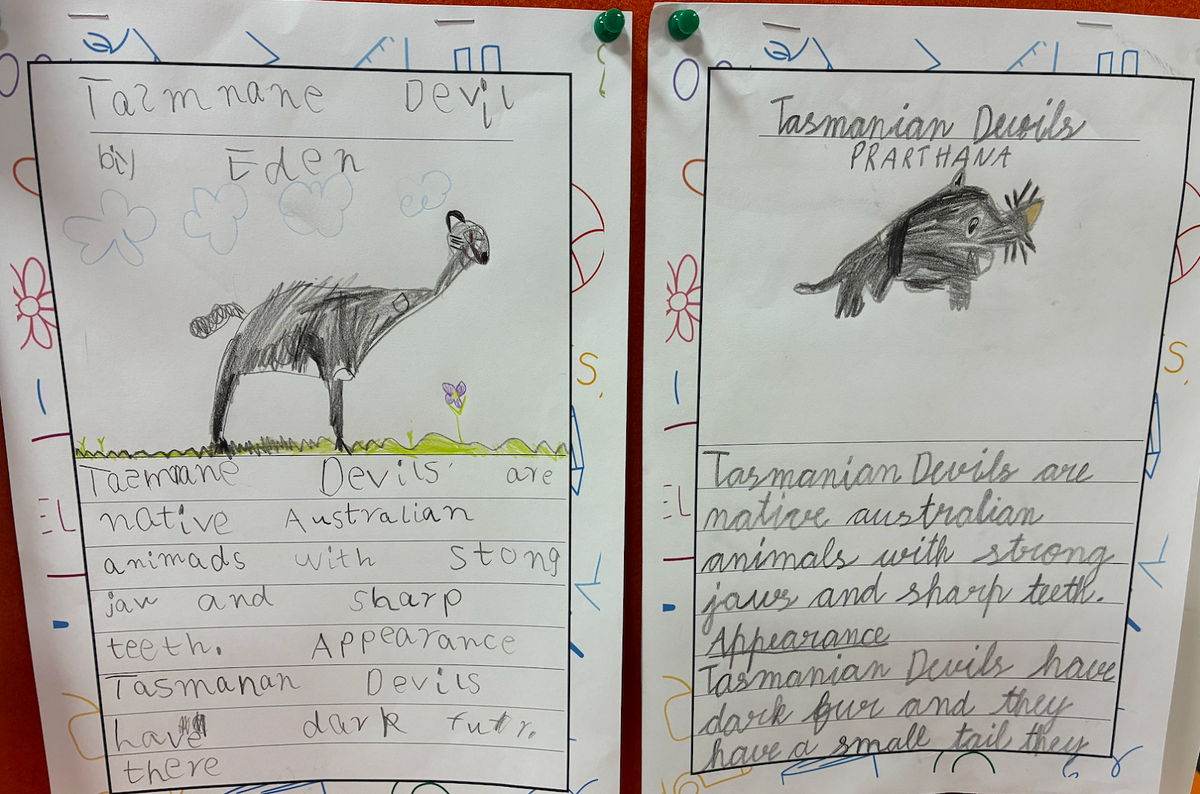 Tazmnane Devil
by Eden
Tazmnane Devils are
native Australian
animads with stong
jaw and sharp
teeth. Appearance
Tasmanan Devils
have dark
there
Tasmanian Devils
PRARTHANA
Tasmanian Devils are
native australian
animals with strong
jaws and sharp teeth.
Appearance
Tasmanian Devils have
dark fur and they
have a small tail they